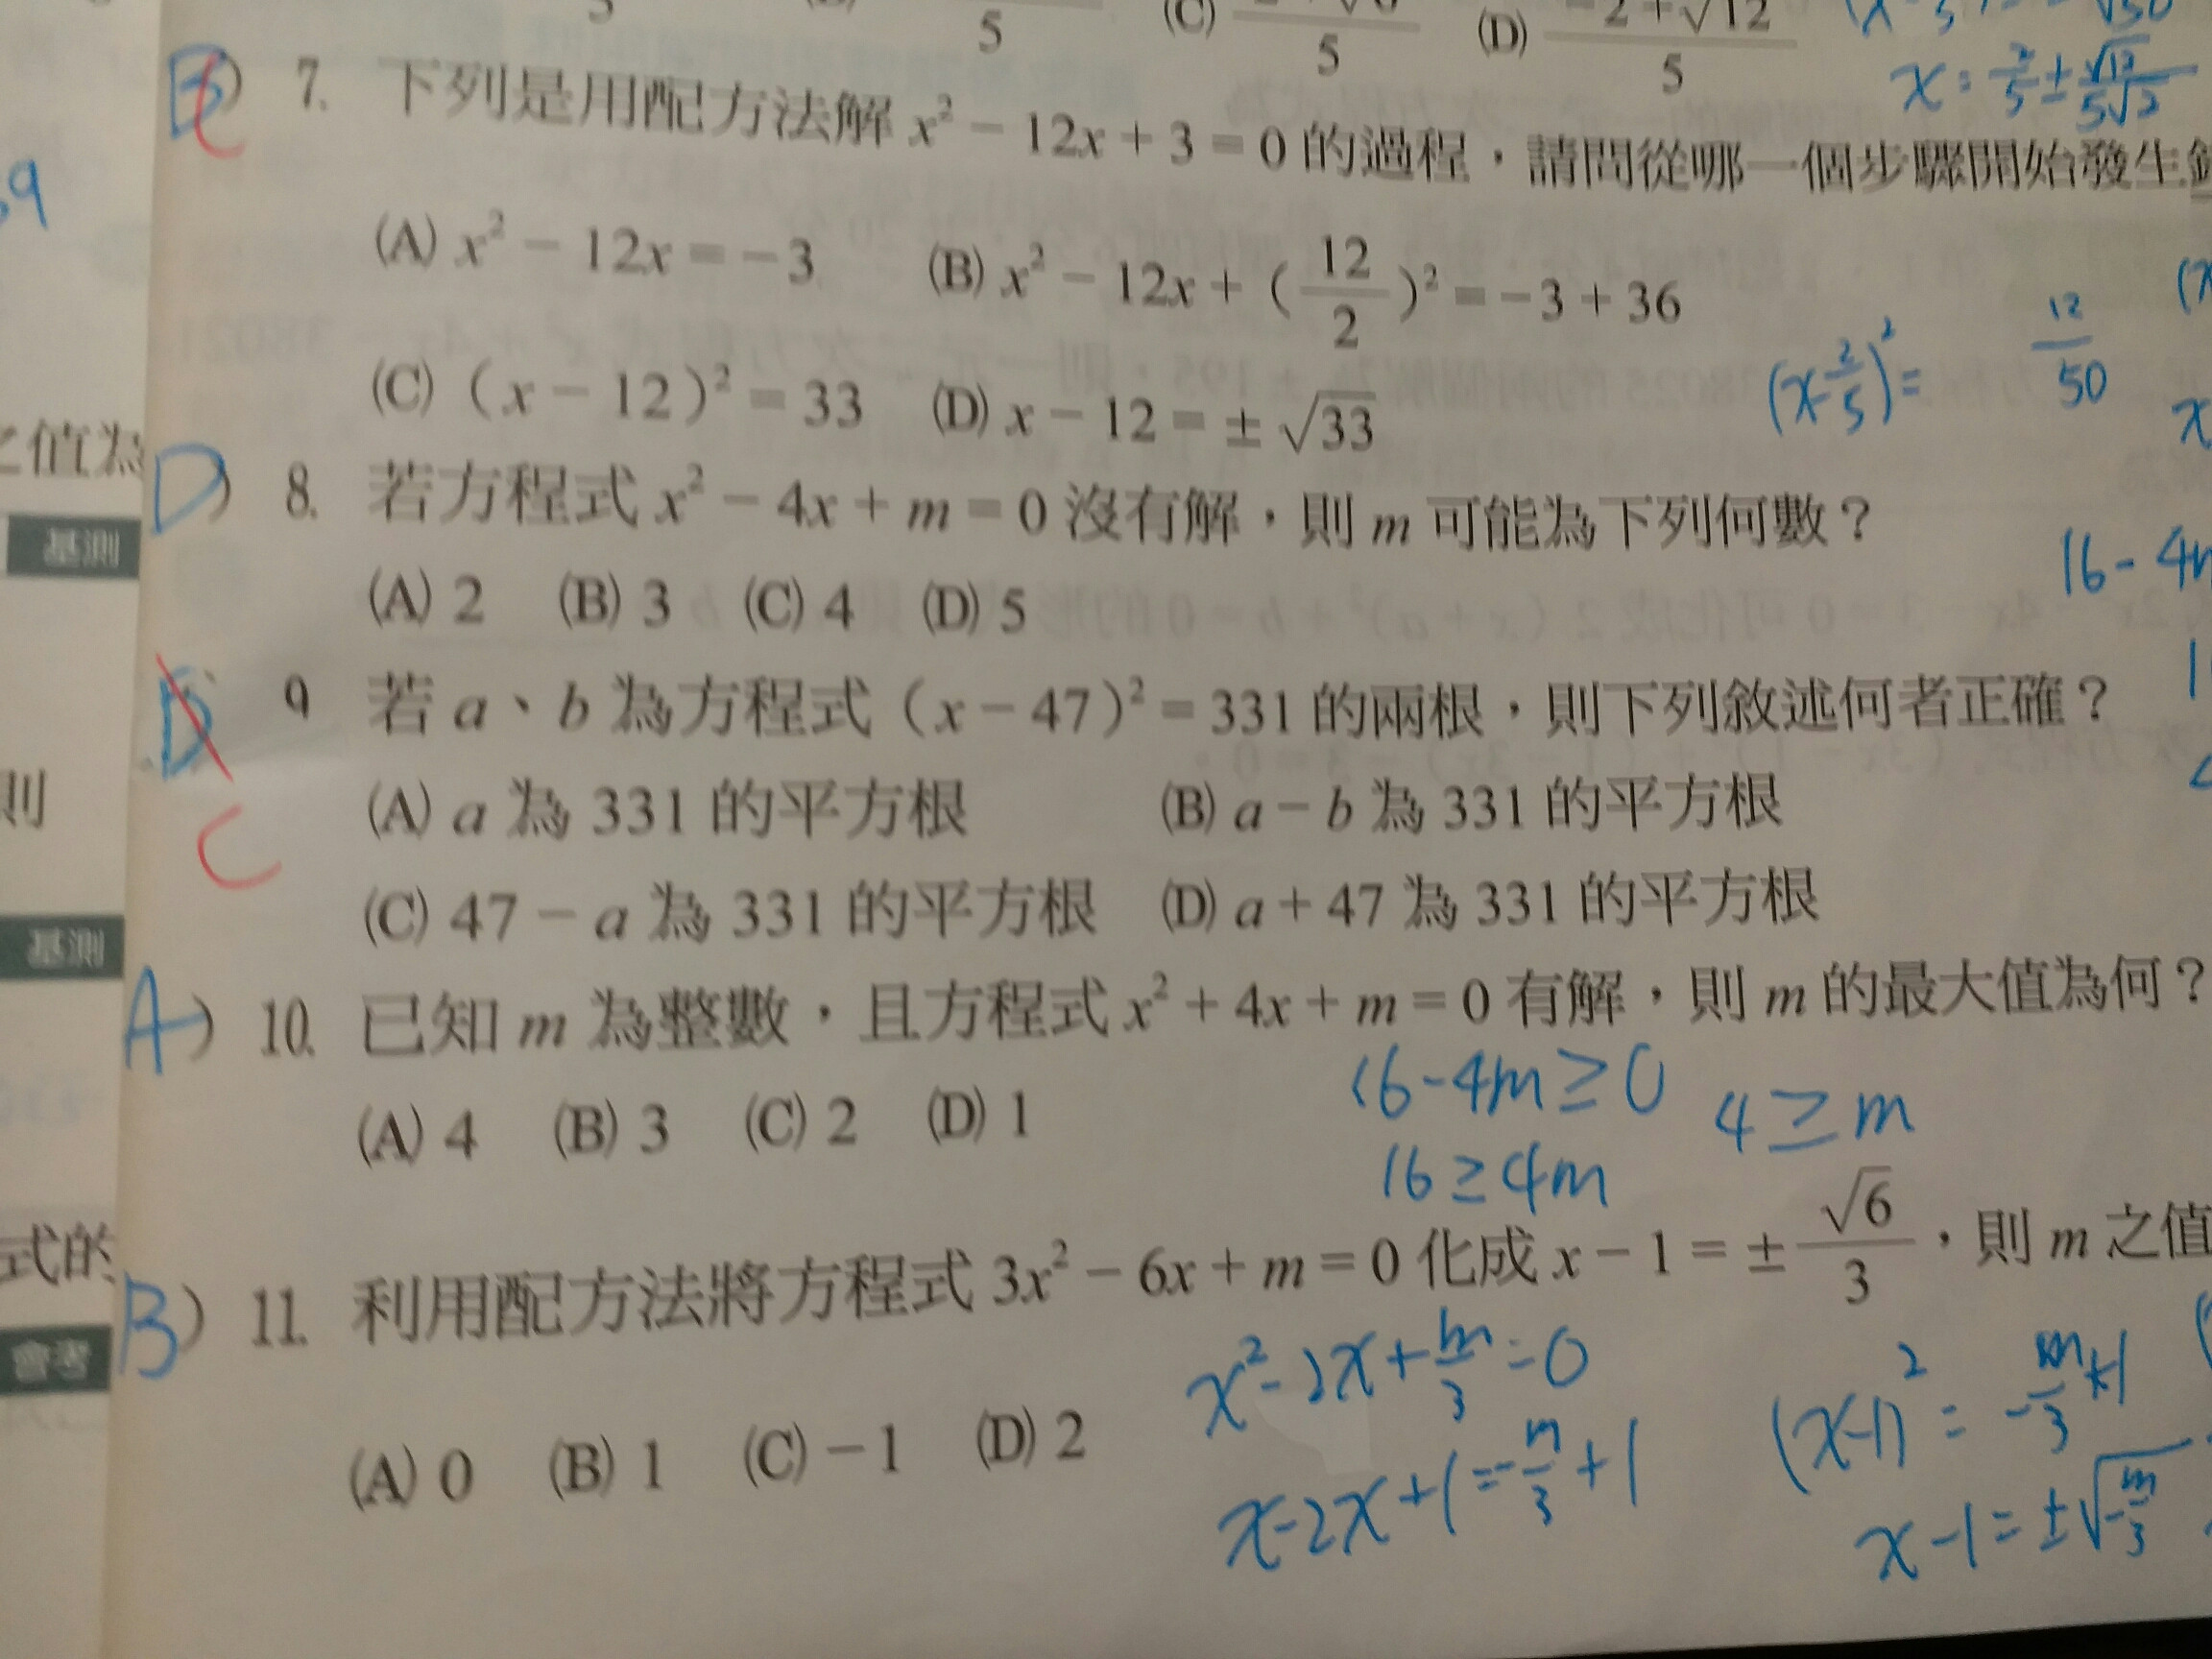 5
5
(C)
5
(D) -2+√12 / 5
x = 2/5 ± √12 / 5√2
7. 下列是用配方法解 x² - 12x + 3 = 0 的過程，請問從哪一個步驟開始發生
C
9
(A) x² - 12x = -3 (B) x² - 12x + (12/2)² = -3 + 36
(x - 2/5)² = 12/50
(C) (x - 12)² = 33 (D) x - 12 = ±√33
之值為
D) 8. 若方程式 x² - 4x + m = 0 沒有解，則 m 可能為下列何數？
基測
16 - 4m
(A) 2 (B) 3 (C) 4 (D) 5
D 9 若 a、b 為方程式 (x - 47)² = 331 的兩根，則下列敘述何者正確？
則
(A) a 為 331 的平方根 (B) a - b 為 331 的平方根
C
(C) 47 - a 為 331 的平方根 (D) a + 47 為 331 的平方根
基測
A) 10. 已知 m 為整數，且方程式 x² + 4x + m = 0 有解，則 m 的最大值為何？
(A) 4 (B) 3 (C) 2 (D) 1
16 - 4m ≥ 0 4 ≥ m
16 ≥ 4m
式的
B) 11. 利用配方法將方程式 3x² - 6x + m = 0 化成 x - 1 = ±√6/3，則 m 之值
會考
x² - 2x + m/3 = 0
(x-1)² = -m/3 + 1
(A) 0 (B) 1 (C) -1 (D) 2
x - 2x + 1 = -m/3 + 1
x - 1 = ±√-m/3